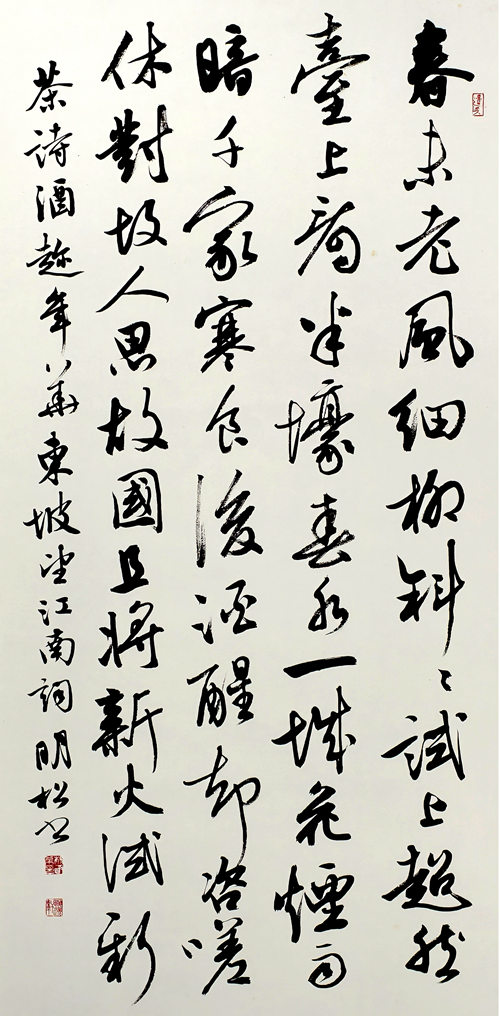 春未老風細柳斜〻試上超然
臺上看半壕春水一城花煙雨
暗千家寒食後酒醒却咨嗟
休對故人思故國且將新火試新
茶詩酒趁年華東坡望江南詞明松書